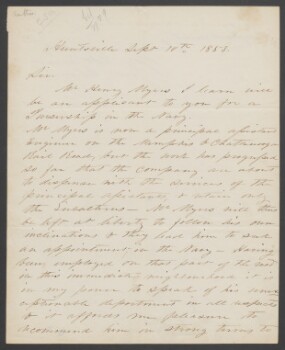 Huntsville Sept 10th 1853.
Sir
Mr Henry Myers I learn will
be an applicant to you for a
Pursership in the Navy.
Mr Myers is now a principal assistant
Engineer on the Memphis & Chattanooga
Rail Road, but the work has progressed
so far that the company are about
to dispense with the services of the
principal assistants, & retain only
the Mr Myers will thus
be left at liberty to follow his own
inclinations & they lead him to seek
an appointment in the Navy - Having
been employed on that part of the road
in this immediate neighborhood it is
in my power to speak of his unex-
ceptionable deportment in all respects
& it affords me pleasure to
recommend him in strong terms to